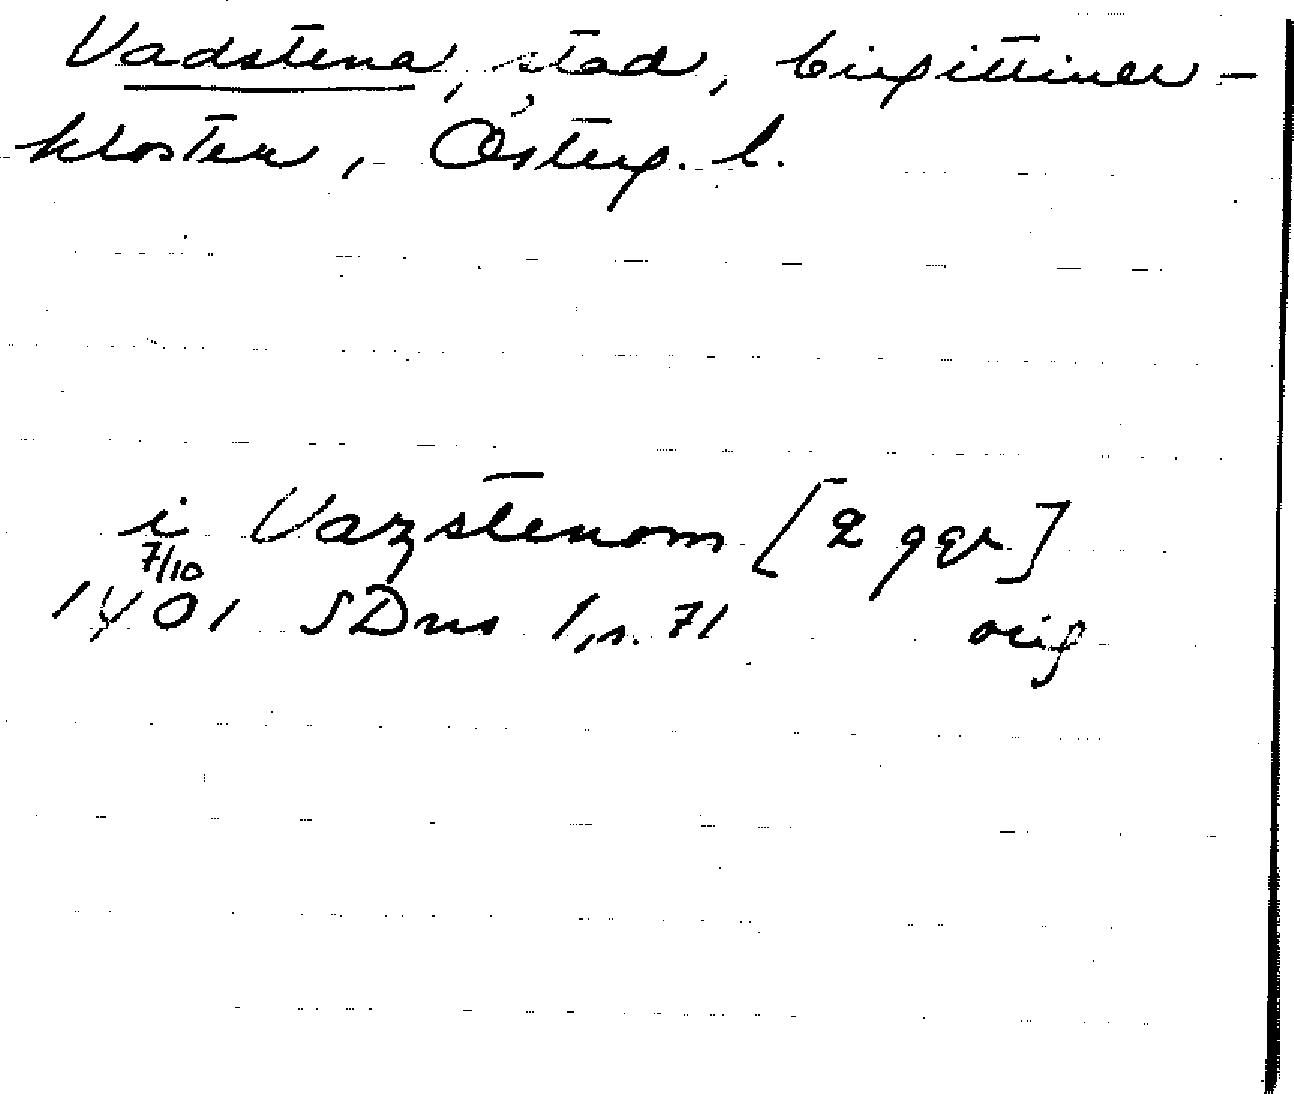 Vadstena, stad, birgittiner-
kloster, Österg. l.
i Vazstenom [2 ggr]
7/10
1401 SDns 1, s. 71 orig